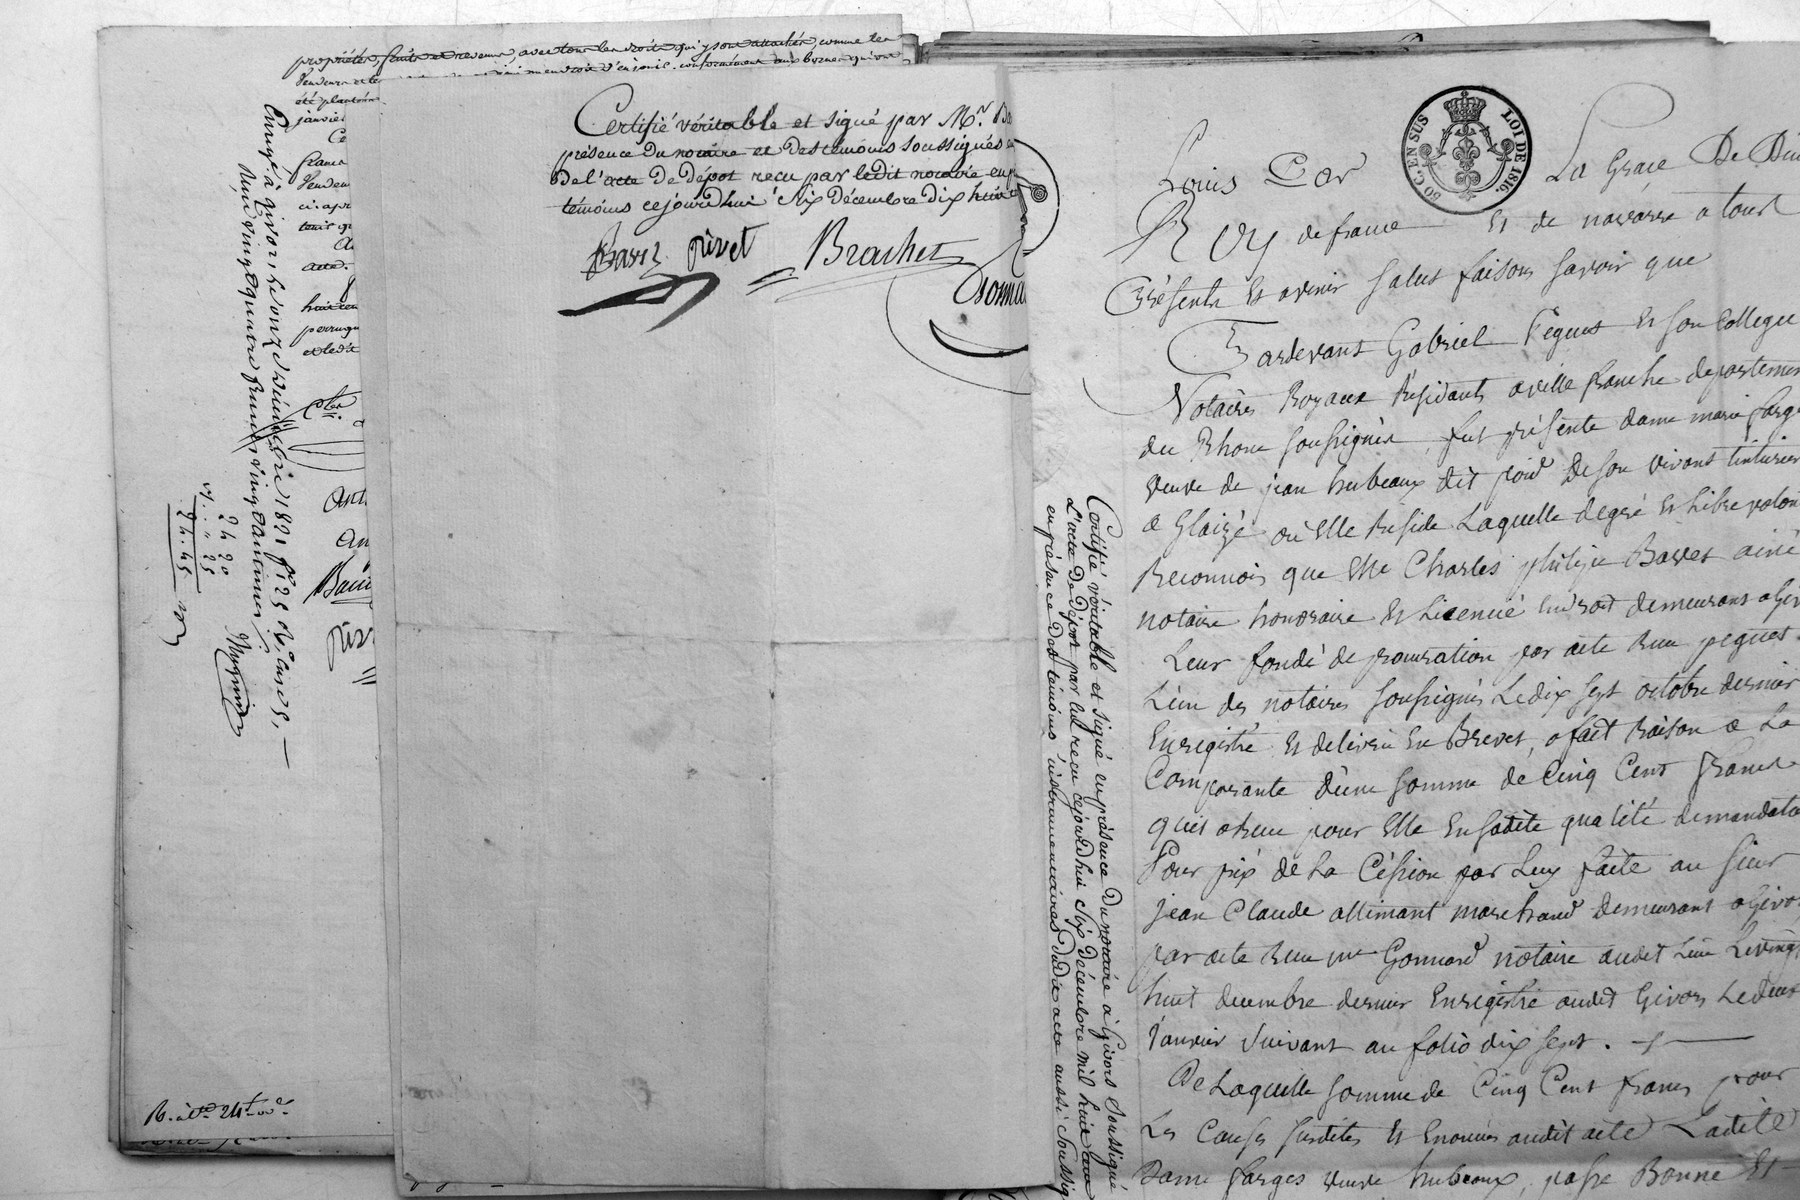 propriétés, fruits et revenus, avec tous les droits qui y sont attachés, comme les
Vendeurs et les
été plantées
janvier
Ce
franc
Vendeu
ci apr
tenir qu
acte.
huit cen
perruqu
et ledit
Enregé à givors, le onze décembre 1821 fo 125 Ro, cases,
Reçu vingt quatre francs vingt centimes
24 20
25
24.45
R. à
Certifié véritable et signé par Mr. Ba
présence du notaire et des témoins soussignés
De l'acte De Dépôt recu par ledit notaire en p
témoins cejourd'hui Six Décembre Dix huit
Barez pivet Brachet
Gonna
Certifié véritable et signé en présence Du notaire à Givors Soussigné
L'acte De Dépôt par lui recu cejourd'hui Six Décembre mil huit cent
en présence Des témoins instrumentaires Dudit acte aussi Soussig
80 C. EN SUS LOI DE 1816.
Louis Par La Grace De Dieu
Roy de france Et de navarre a tous
Présents Et avenir Salut faisons Savoir que
Pardevant Gabriel Pequet Et Son Collegue
Notaires Royaux Residants a ville franche departemen
du Rhone Soussignés, fut présente dame marie farge
veuve de jean hubeaux dit poid De Son vivant tinturier
a Glaizé où Elle Reside Laquelle degré Et Libre volon
Reconnois que Me Charles philipe Barret ainé
notaire honoraire Et Licencié En droit demeurant a Giv
Leur fondé de procuration par acte Recu pequet
L'un des notaires Soussignés Le dix Sept octobre dernier
Enregistré Et delivré En Brevet, a fait Raison a La
Comparante d'une Somme de Cinq Cent francs
qu'il a Recu pour Elle En Sadite qualité de mandata
Pour prix de La Céssion par Luy faite au Sieur
jean Claude allimant marchand demeurant a Givo
par acte Recu me Gonnard notaire audit Lieu Le vingt
huit decembre dernier Enregistré audit Givors Le deux
Janvier Suivant au folio dix Sept.
De Laquelle Somme de Cinq Cent francs pour
Les Causes Susdites Et Enoncées audit acte Ladite
Dame farges veuve hubeaux, passe Bonne Et